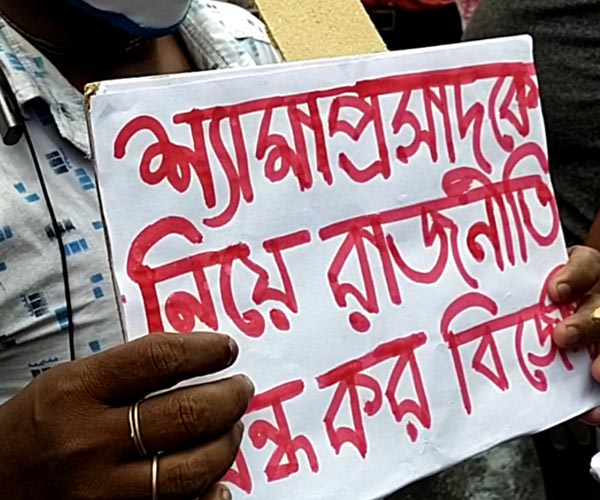 শ্যামাপ্রসাদকে
নিয়ে রাজনীতি
বন্ধ কর